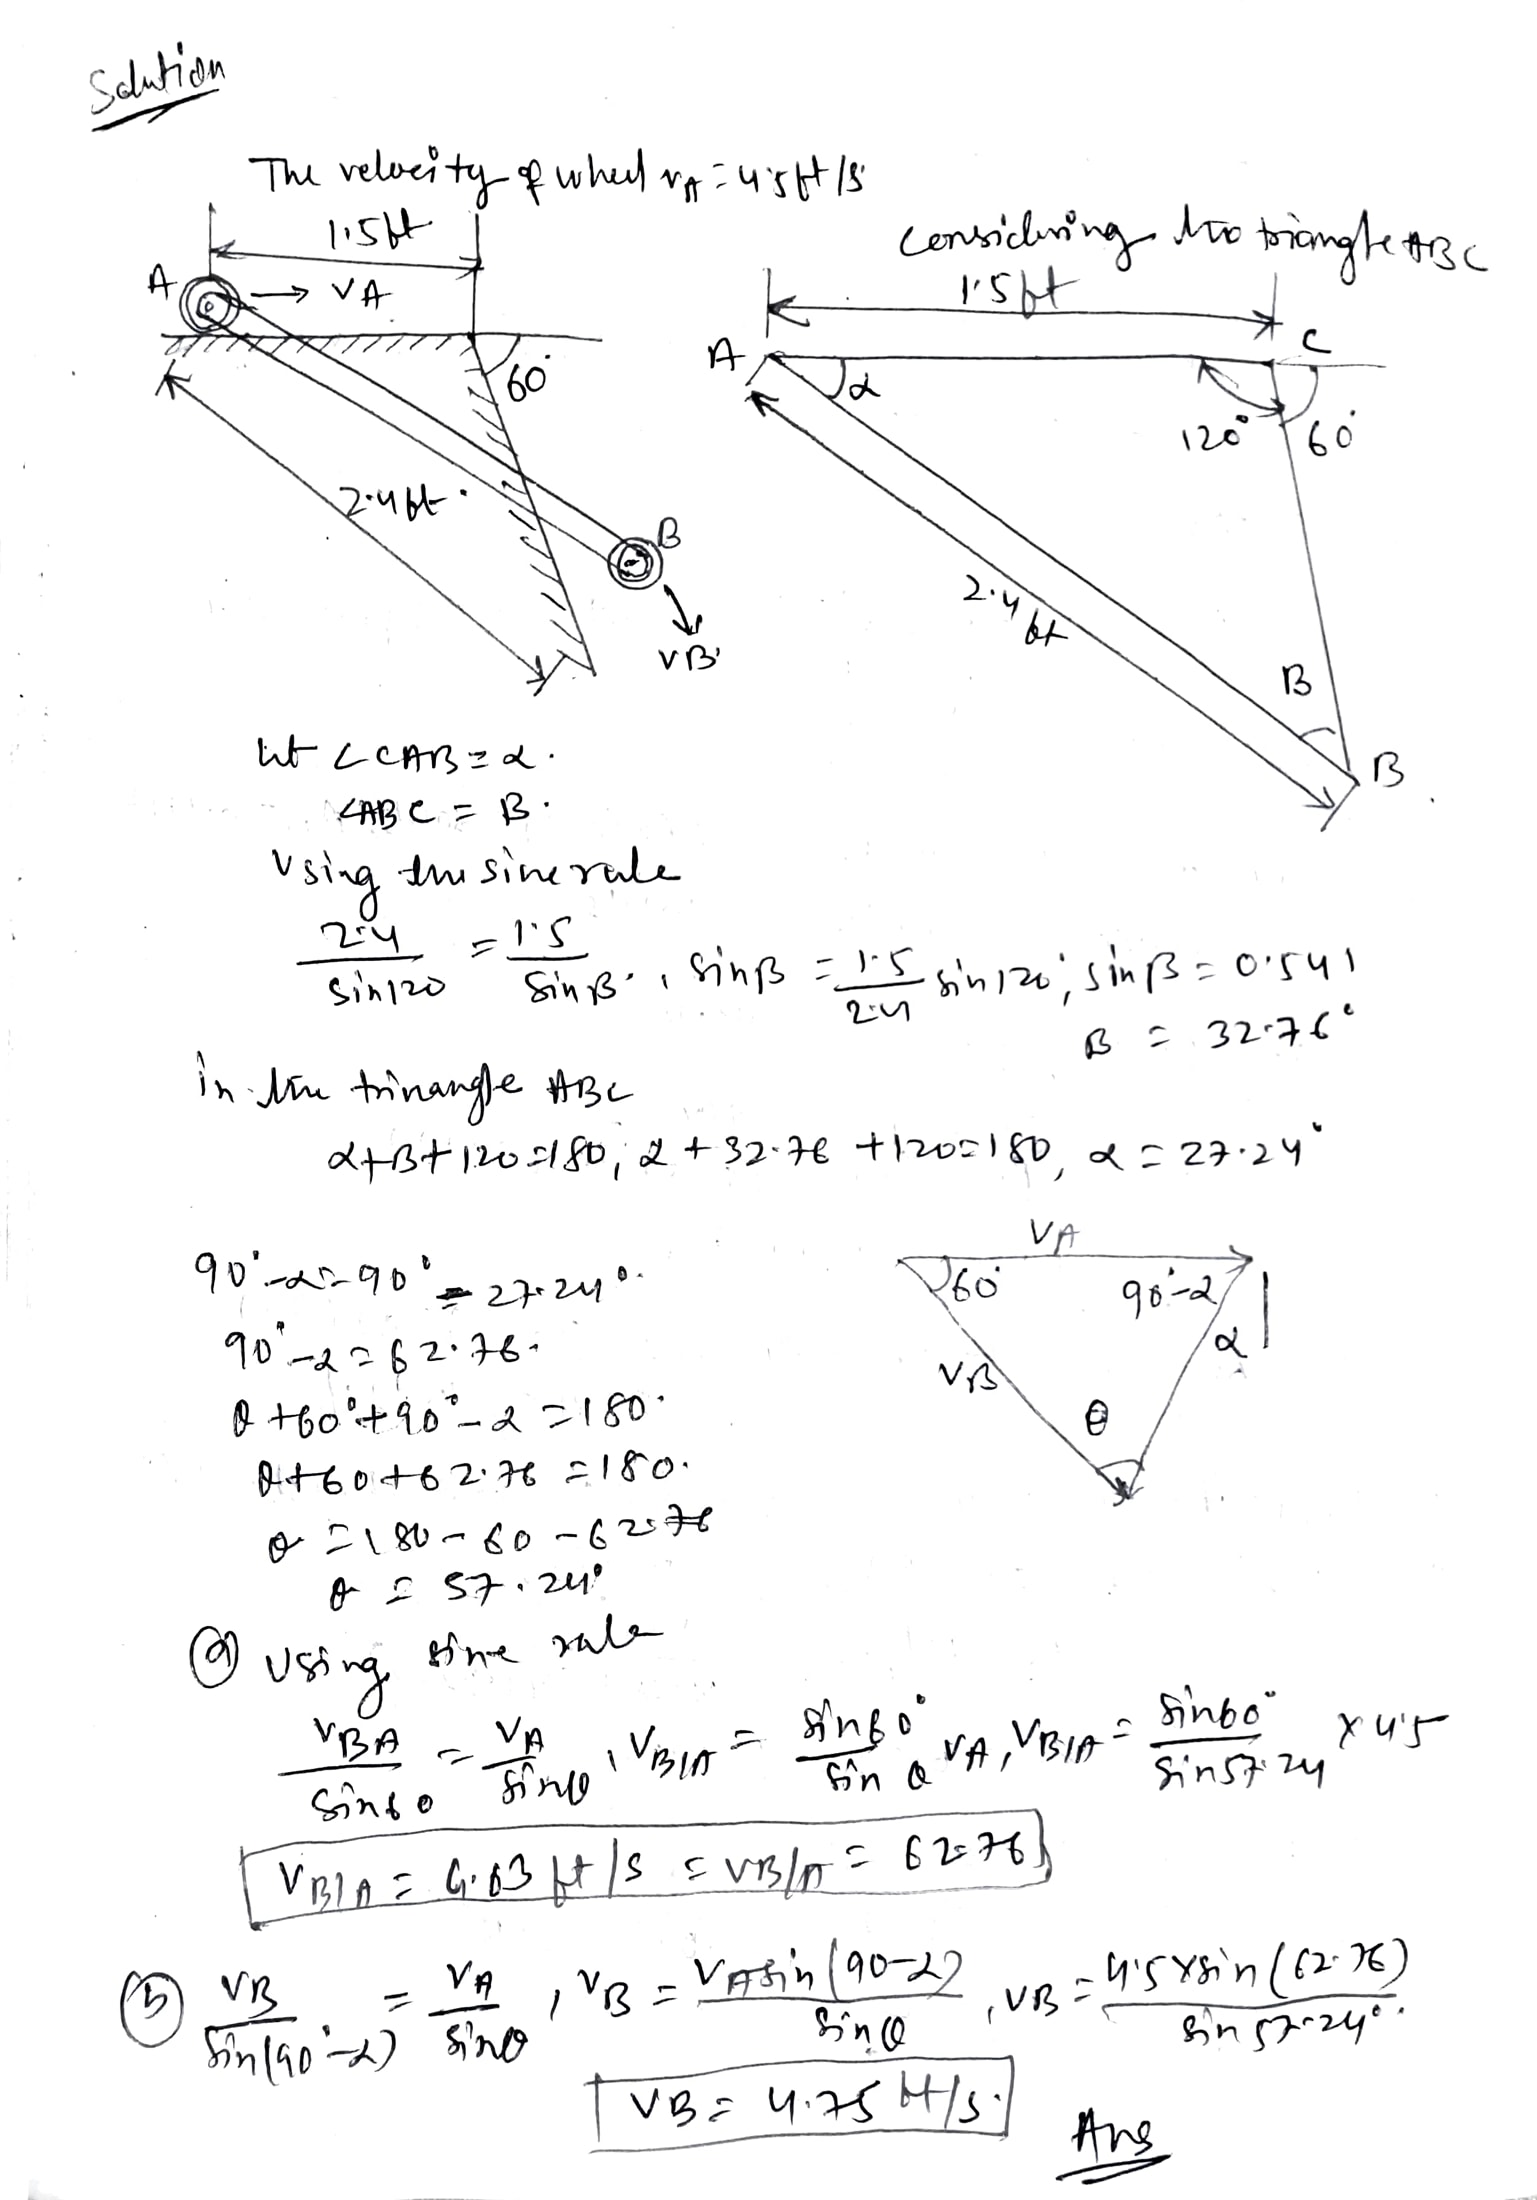 Solution
The velocity of wheel vA = 4.5 ft/s
1.5ft
A
VA
60°
2.4ft.
B
VB
Considering the triangle ABC
1.5ft
A
C
α
120°
60°
2.4 ft
B
B
let ∠CAB = α.
∠ABC = B.
Using the sine rule
2.4/sin120 = 1.5/sinB, sinβ = 1.5/2.4 sin120°, sinβ = 0.541
B = 32.76°
in the trinangle ABC
α+B+120=180, α + 32.76 +120=180, α = 27.24°
90°-α = 90° - 27.24°.
90°-α = 62.76.
θ +60°+90°-α =180.
θ+60+62.76 =180.
θ = 180 - 60 - 62.76
θ = 57.24°
VA
60°
90°-α
α
VB
θ
(a) Using sine rule
VBA/sin60 = VA/sinθ, VB/A = sin60°/sin θ VA, VB/A = sin60°/sin57.24 × 4.5
VB/A = 4.63 ft/s = VB/A = 62.76
(b) VB/sin(90°-α) = VA/sinθ, VB = VA sin(90-α)/sinθ, VB = 4.5 × sin(62.76)/sin 57.24°.
VB = 4.75 ft/s.
Ans